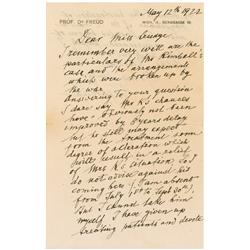 PROF. DR FREUD
WIEN, IX., BERGGASSE 19.
May 12th 1922
Dear Miss
I remember very well all the
particulars of Mr Kimball's
case and the arrangement
which were broken up by
the war.
Answering to your question
I dare say Mr K's chances
have obviously not been
improved by 8 years delay
but he still may expect
from the treatment some
degree of alteration which
itself in a relief
of Mrs K's situation, so I
do not advise against his
coming here (I am absent
from July 1st to Sept 30th).
But I cannot take him
myself, I have given up
treating patients and devote